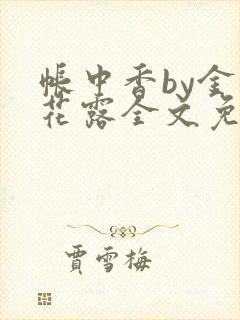 帐中香by金
花露全文免
贾雪梅